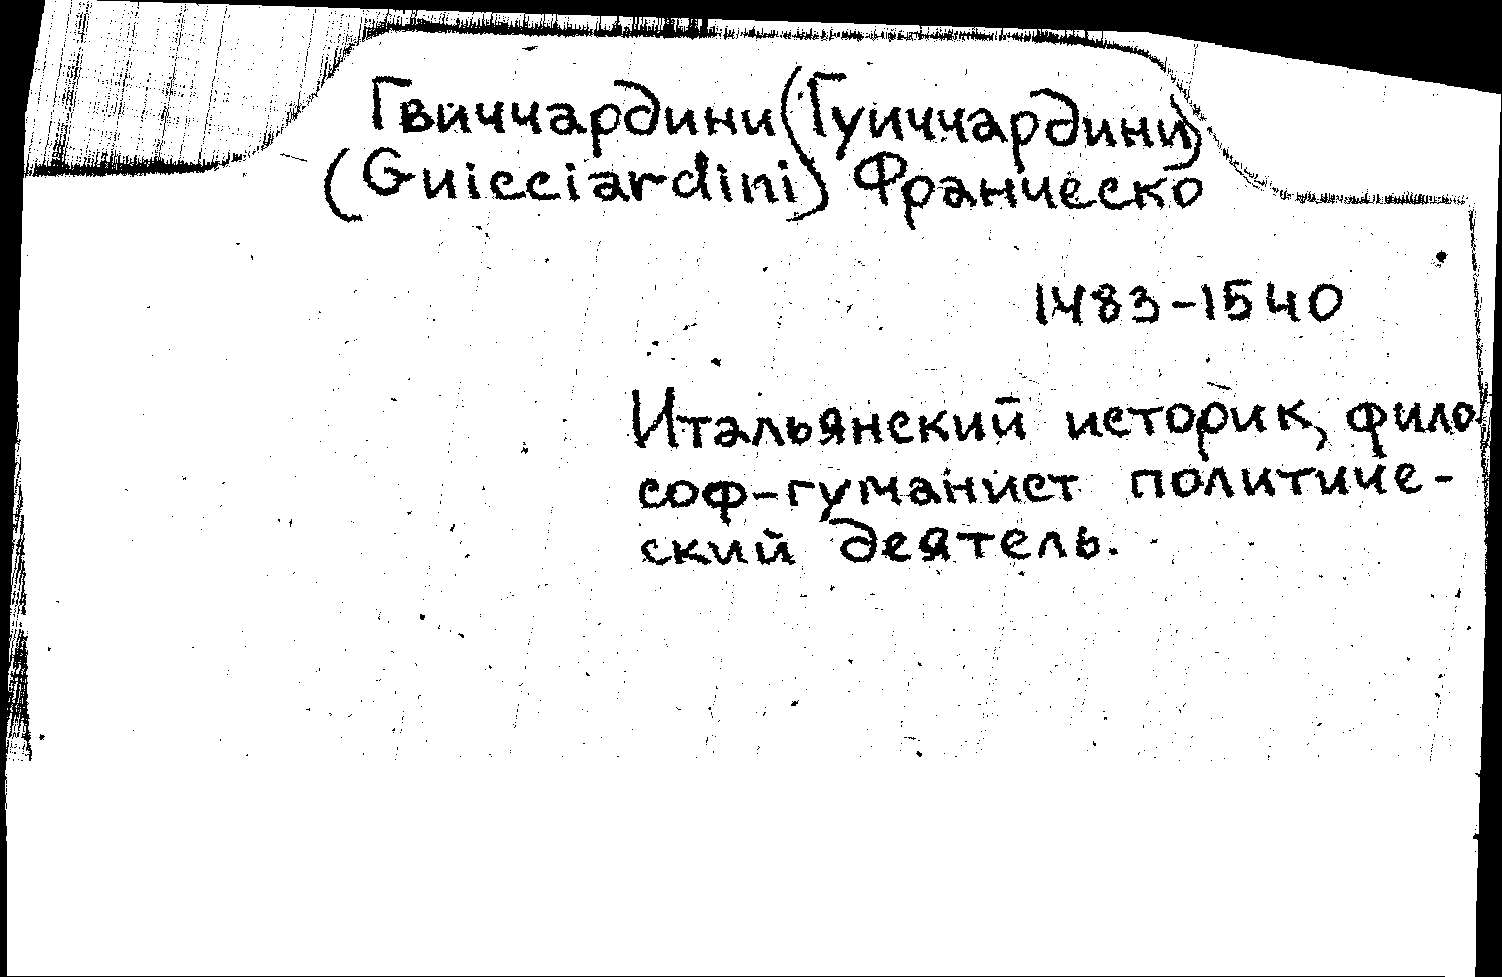 Гвиччардини (Гуиччардини)
(Guicciardini) Франческо
1483-1540
Итальянский историк, фило
соф-гуманист политиче-
ский деятель.